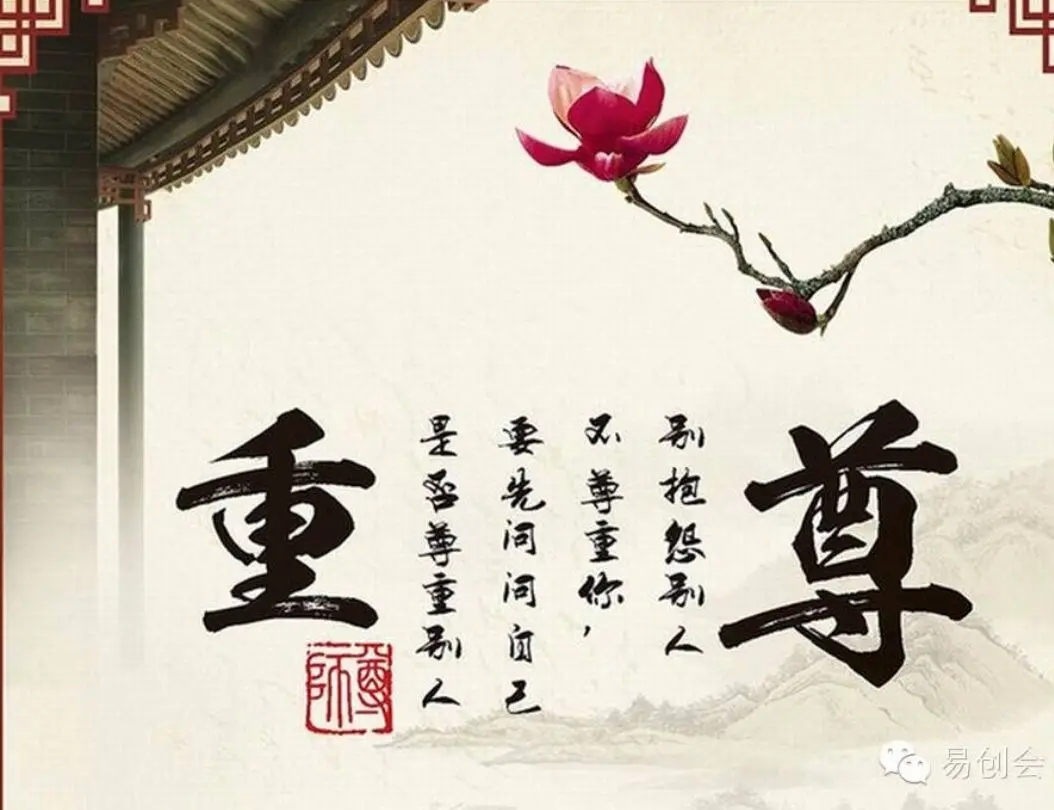 尊
别抱怨别人
不尊重你，
要先问问自己
是否尊重别人
重
尊师
易创会